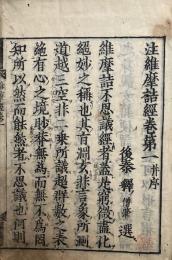 注維摩詰經卷第一并序
後秦釋僧肇選
維摩詰不思議經者蓋是窮微盡化
絕妙之稱也其旨淵玄非言象所測
道越三空非二乘所議超群數之表
絕有心之境眇莽無為而無不為罔
知所以然而能然者不思議也何則